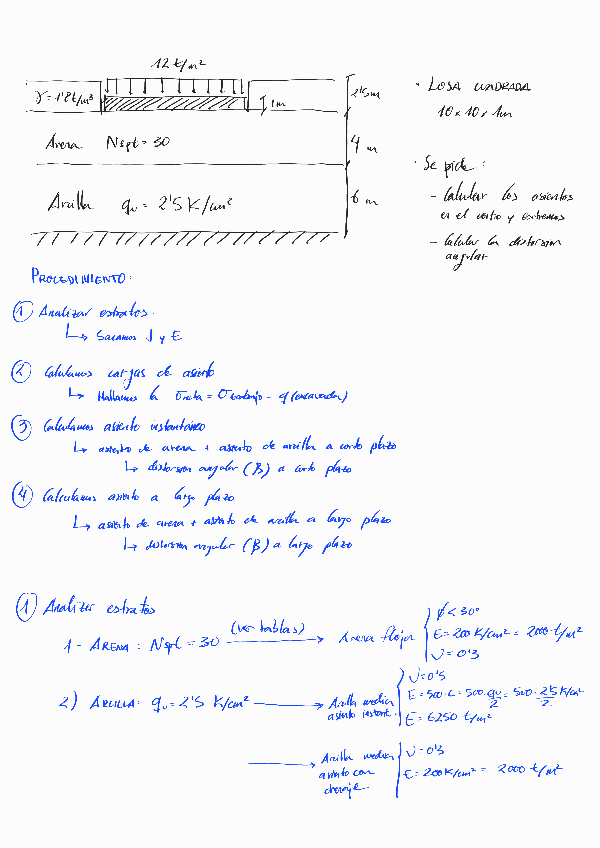 12 t/m²
γ = 1'8 t/m³
1m
2'5m
Arena Nspt = 30
4 m
Arcilla qu = 2'5 K/cm²
6 m
· LOSA CUADRADA
10 x 10 x 1m
· Se pide:
- Calcular los asientos
en el centro y extremos
- Calcular la distorsion
angular
PROCEDIMIENTO:
① Analizar estratos.
↳ Sacamos ν y E
② Calculamos cargas de asiento
↳ Hallamos la σneta = σtrabajo - q(excavación)
③ Calculamos asiento instantáneo
↳ asiento de arena + asiento de arcilla a corto plazo
↳ distorsion angular (β) a corto plazo
④ Calculamos asiento a largo plazo
↳ asiento de arena + asiento de arcilla a largo plazo
↳ distorsion angular (β) a largo plazo
① Analizar estratos
1- ARENA: Nspt = 30 (ver tablas) → Arena floja
φ < 30°
E = 200 K/cm² = 2000 t/m²
ν = 0'3
2) ARCILLA: qu = 2'5 K/cm² → Arcilla media
asiento instant.
ν = 0'5
E = 500·c = 500·qu/2 = 500·2'5/2 K/cm²
E = 6250 t/m²
→ Arcilla media
asiento con
drenaje
ν = 0'3
E = 200 K/cm² = 2000 t/m²